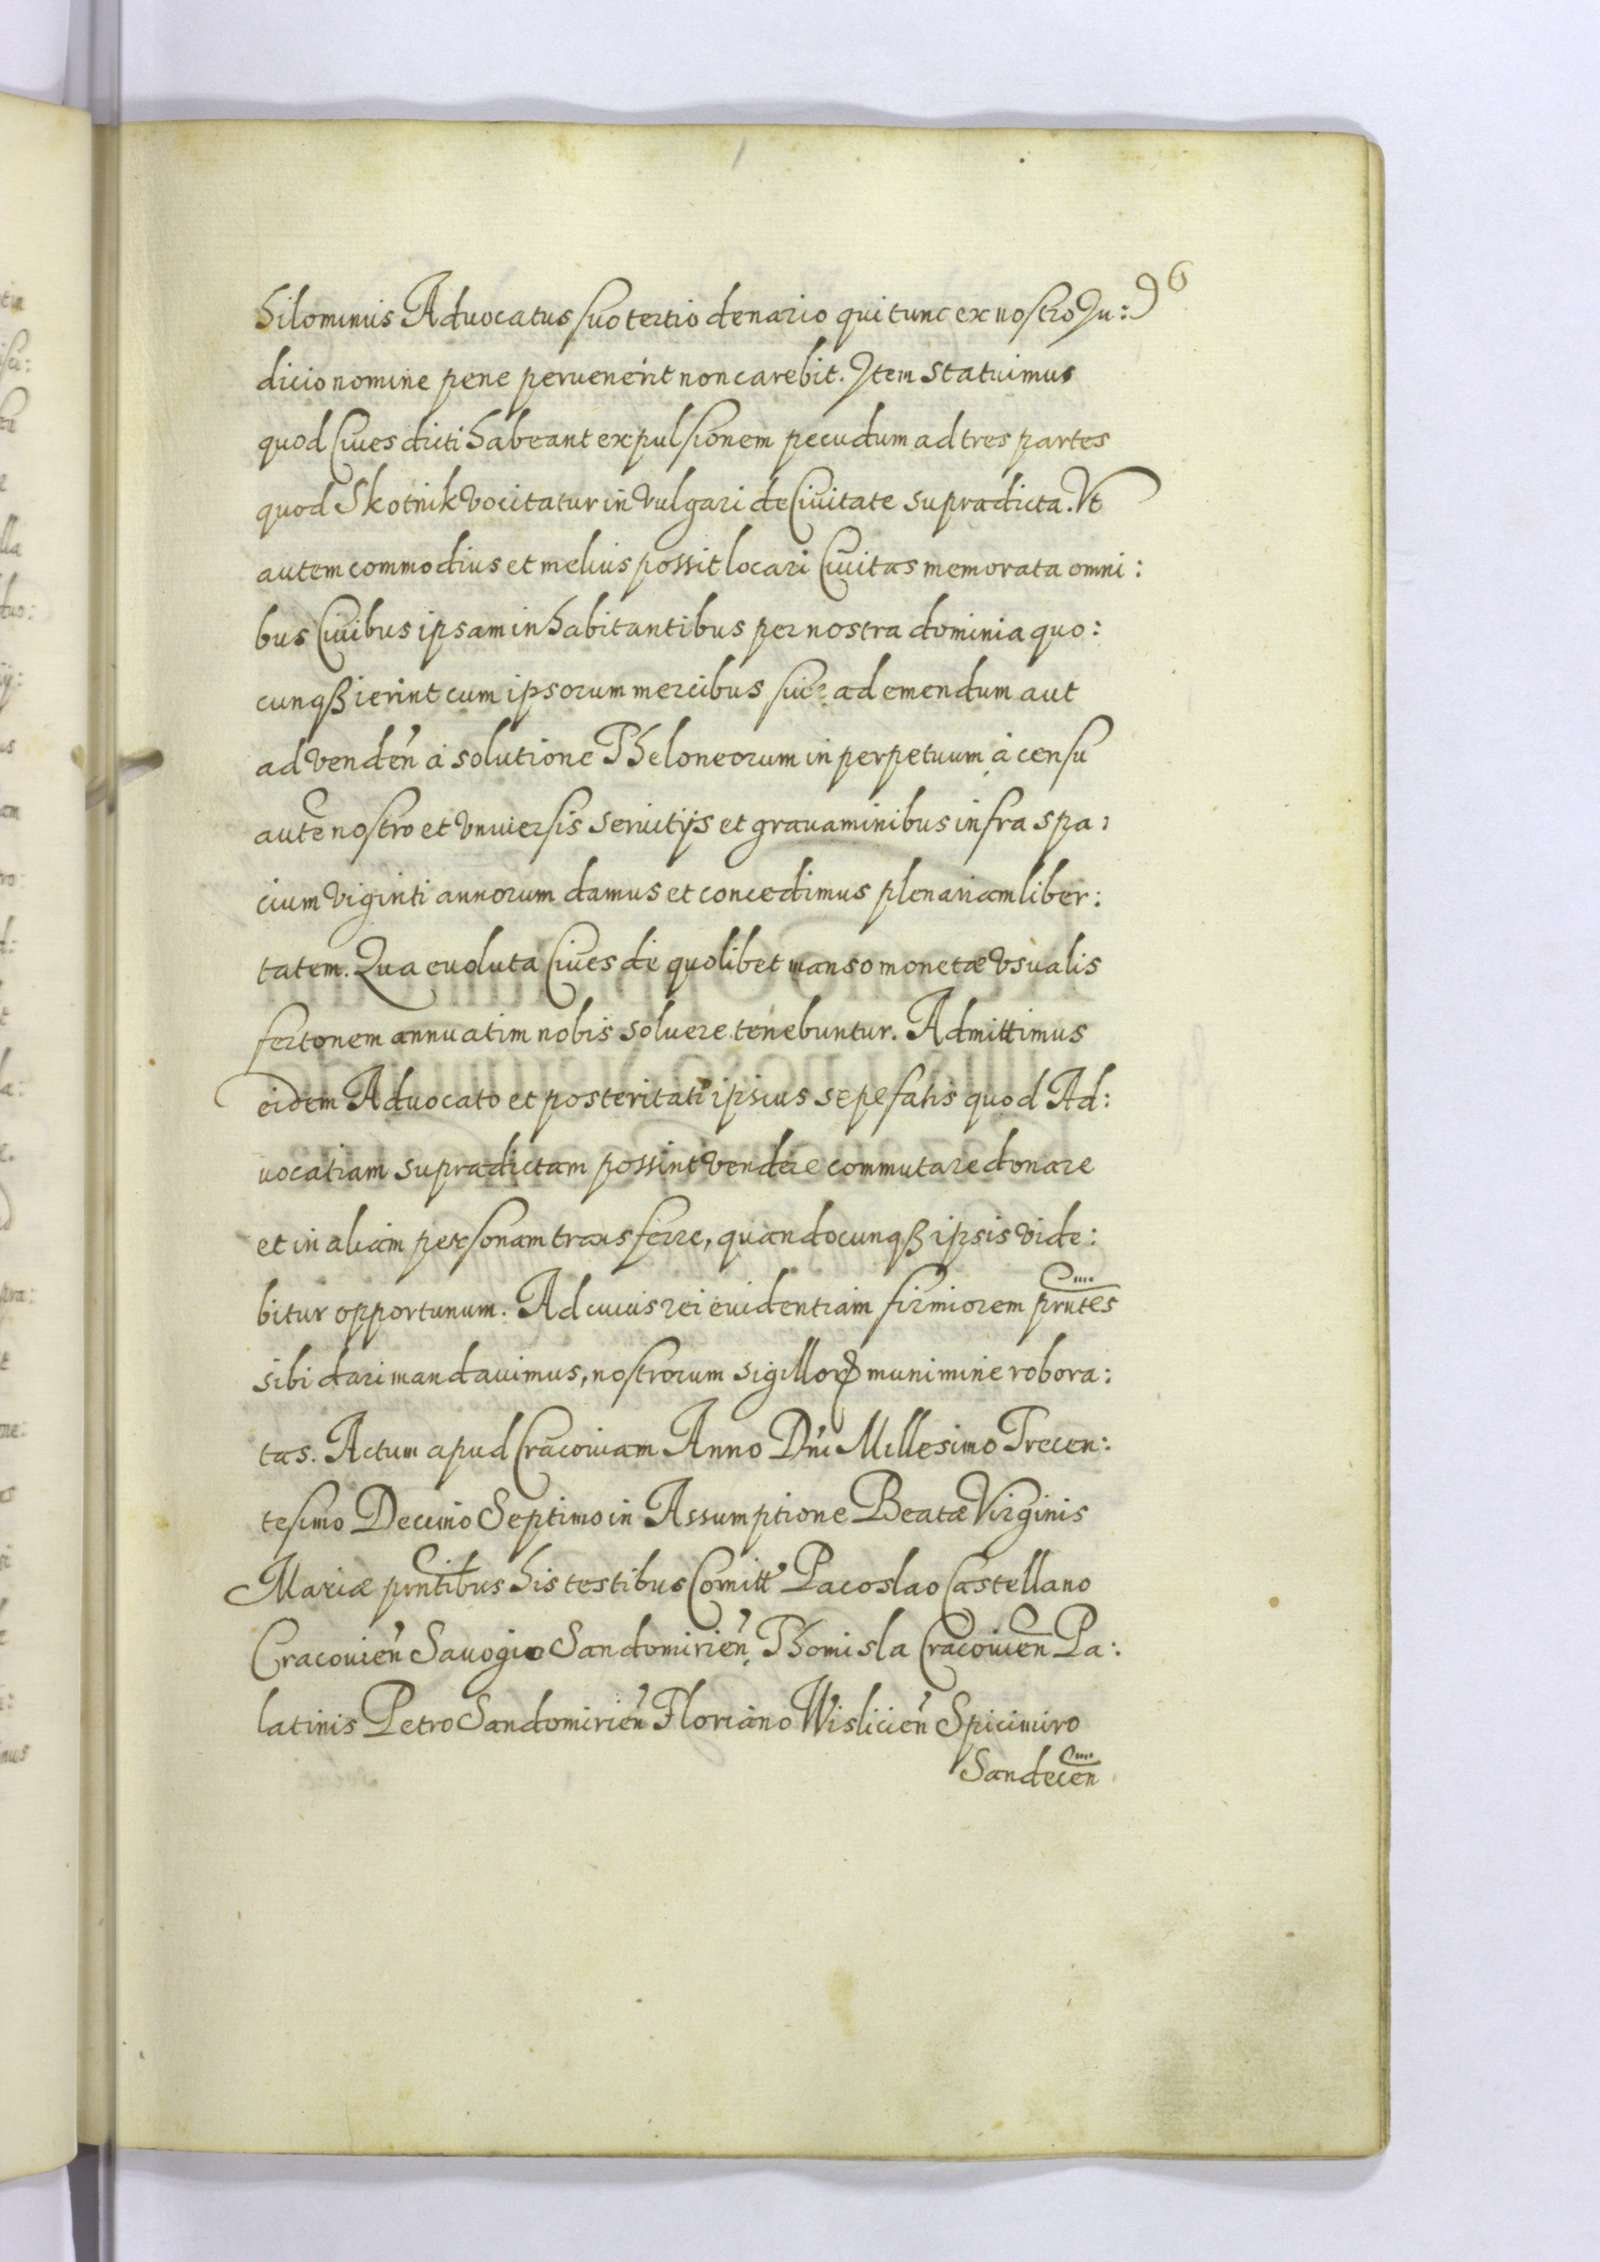 6
hilominus Advocatus suo tertio denario qui tunc ex nostro Ju:
dicio nomine pene pervenerit non carebit. Item statuimus
quod Cives dicti habeant expulsionem pecudum ad tres partes
quod Skotnik vocitatur in vulgari de Civitate supradicta. Vt
autem commodius et melius possit locari Civitas memorata omni:
bus Civibus ipsam inhabitantibus per nostra dominia quo:
cunqß ierint cum ipsorum mercibus sive ad emendum aut
ad venden̉ à solutione Theloneorum in perpetuum, à censu
autẽ nostro et vniversis servitijs et gravaminibus infra spa:
cium viginti annorum damus et concedimus plenariam liber:
tatem. Qua evoluta Cives de quolibet manso monetæ vsualis
fertonem annuatim nobis solvere tenebuntur. Admittimus
eidem Advocato et posteritati ipsius sepefatis quod Ad:
vocatiam supradictam possint vendere commutare donare
et in aliam personam transferre, quandocunqß ipsis vide:
bitur opportunum. Ad cuius rei evidentiam firmiorem prntes
sibi dari mandavimus, nostrorum sigilloꝝ munimine robora:
tas. Actum apud Cracoviam Anno Dni Millesimo Trecen:
tesimo Decimo Septimo in Assumptione Beatæ Virginis
Mariæ prntibus his testibus Comitt' Pacoslao Castellano
Cracovien̉ Savogio Sandomirien̉, Thomisla Cracovien̉ Pa:
latinis Petro Sandomirien̉ Floriano Wislicien̉ Spicimiro
Sandecen̉